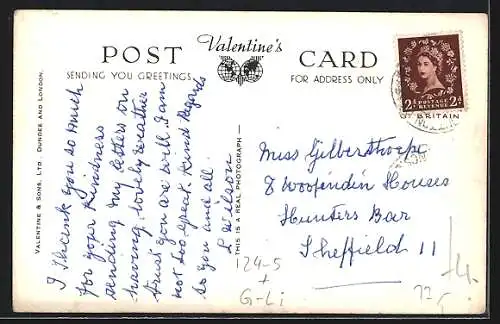 POST Valentine's CARD
SENDING YOU GREETINGS
FOR ADDRESS ONLY
VALENTINE & SONS, LTD. DUNDEE AND LONDON.
I Thank you so much
for your Kindness
sending my letters on
having lovely weather
trust you are well. I am
not too great. Kind Regards
to you and all.
L Wilson
THIS IS A REAL PHOTOGRAPH
2d POSTAGE REVENUE 2d
BRITAIN
Miss Gilberthorpe
8 Woofindin Houses
Hunters Bar
Sheffield 11
24-5
+
G-Li